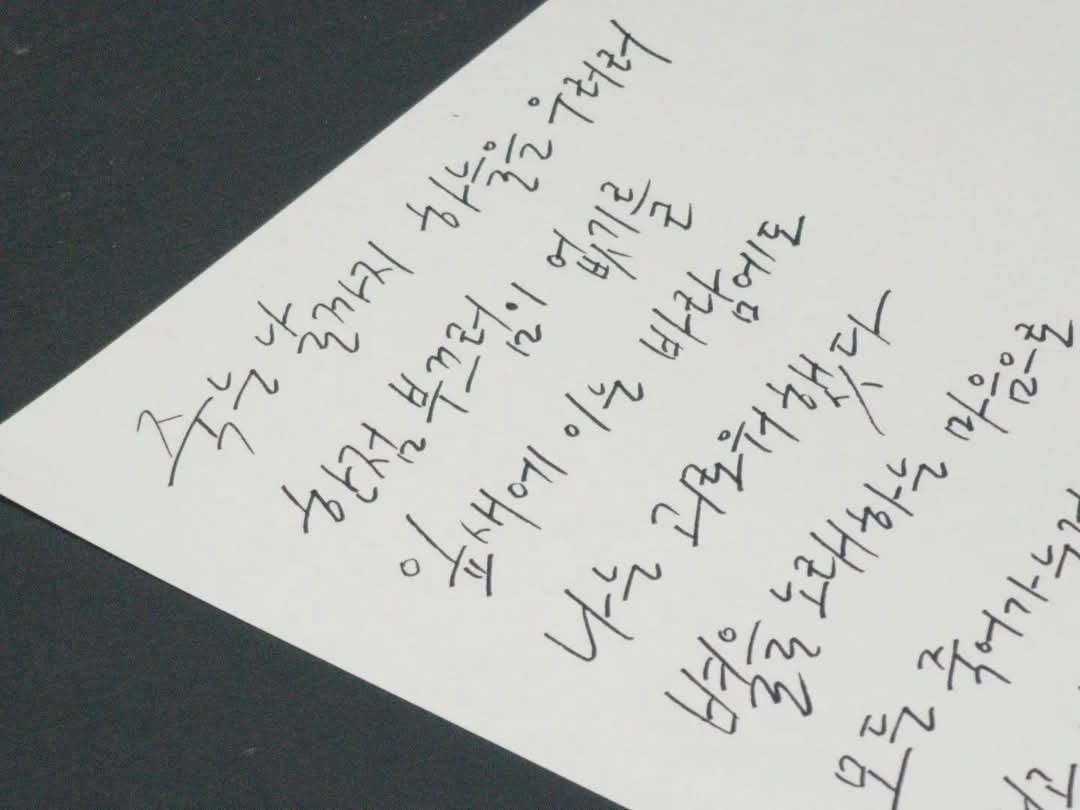 죽는 날까지 하늘을 우러러
한점 부끄럼이 없기를
잎새에 이는 바람에도
나는 괴로워했다
별을 노래하는 마음으로
모든 죽어가는